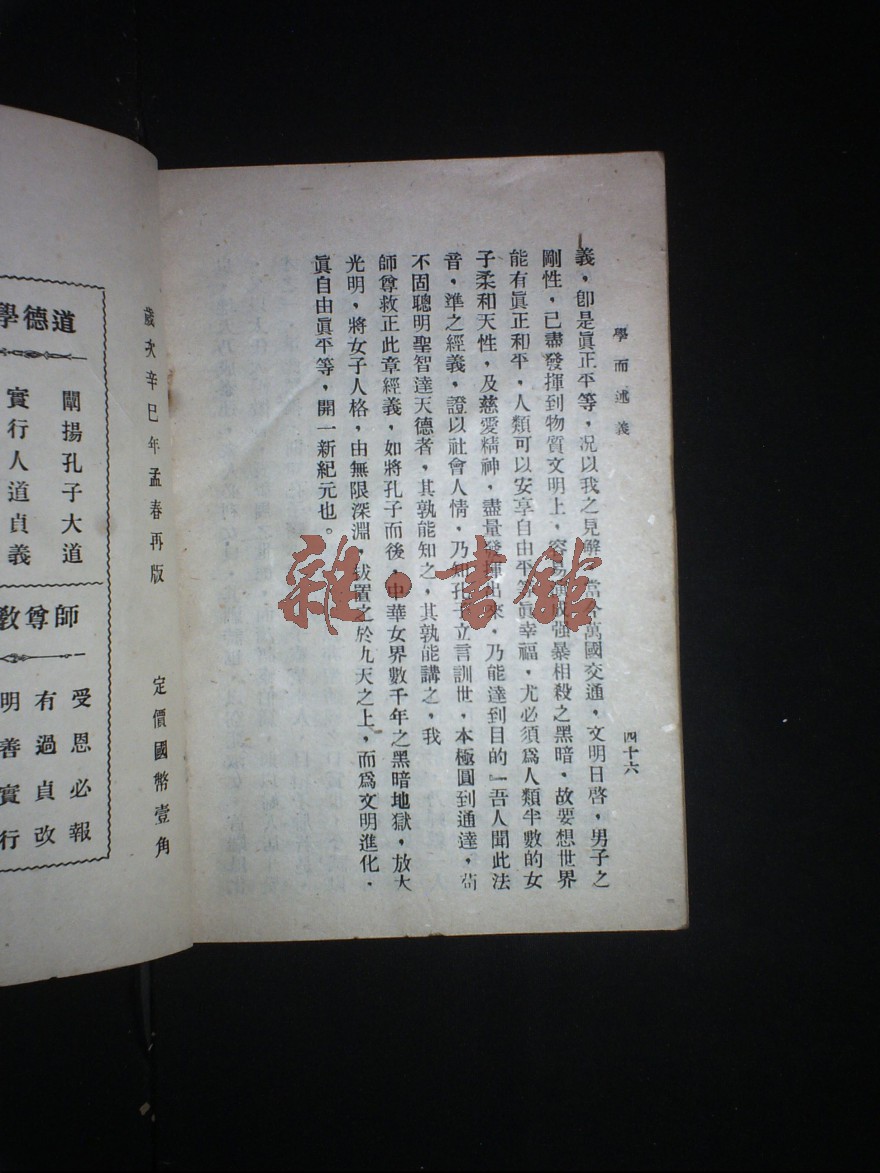 學而述義
四十六
義，卽是眞正平等，況以我之見解，當今萬國交通，文明日啓，男子之
剛性，已盡發揮到物質文明上，容易演成强暴相殺之黑暗，故要想世界
能有眞正和平，人類可以安享自由平等眞幸福，尤必須爲人類半數的女
子柔和天性，及慈愛精神，盡量發揮出來，乃能達到目的』吾人聞此法
音，準之經義，證以社會人情，乃知孔子立言訓世，本極圓到通達，苟
不固聰明聖智達天德者，其孰能知之，其孰能講之，我
師尊救正此章經義，如將孔子而後，中華女界數千年之黑暗地獄，放大
光明，將女子人格，由無限深淵，拔置之於九天之上，而爲文明進化，
眞自由眞平等，開一新紀元也。
雜·書館
歲次辛巳年孟春再版
定價國幣壹角
道德學
闡揚孔子大道
實行人道貞義
師尊教
受恩必報
有過貞改
明善實行